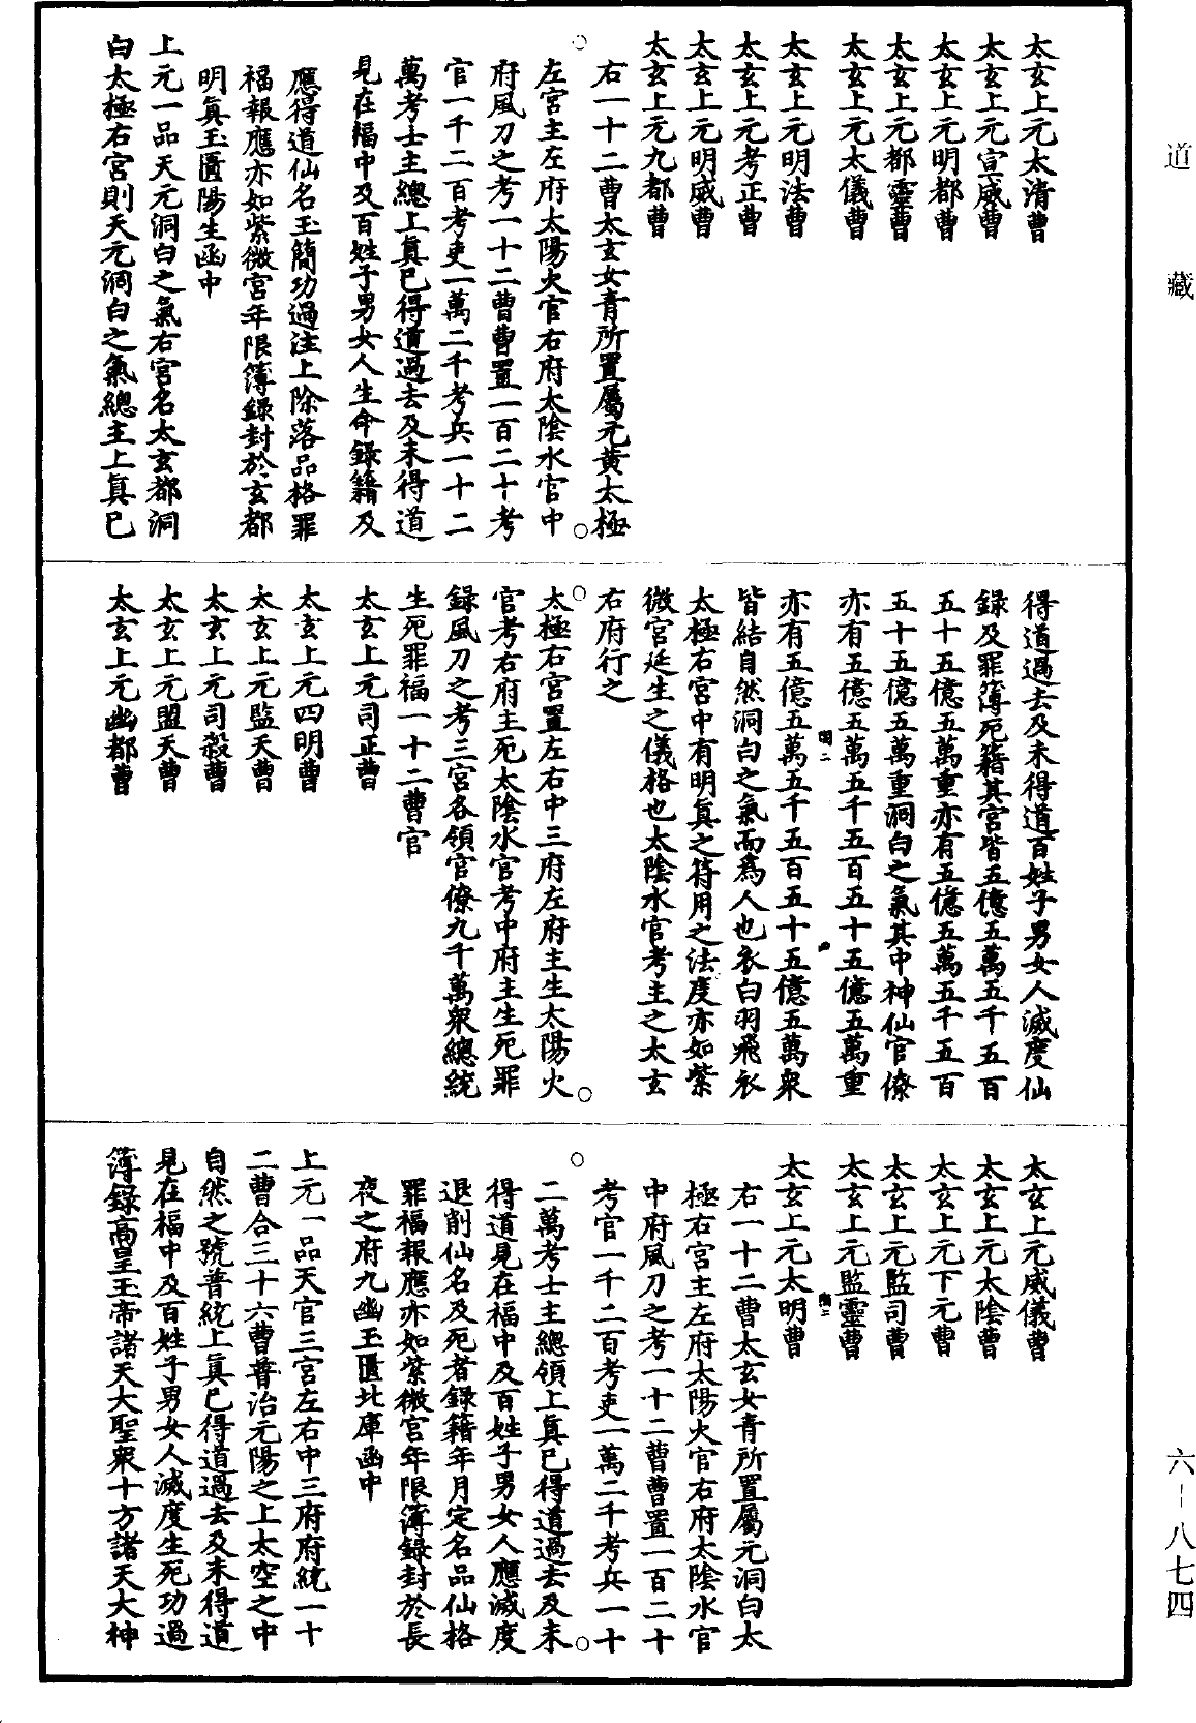 道藏
六-八七四
太玄上元太清曹
太玄上元宣威曹
太玄上元明都曹
太玄上元都靈曹
太玄上元太儀曹
太玄上元明法曹
太玄上元考正曹
太玄上元明威曹
太玄上元九都曹
右一十二曹太玄女青所置屬元黄太極
左宮主左府太陽火官右府太陰水官中
府風刀之考一十二曹曹置一百二十考
官一千二百考吏一萬二千考兵一十二
萬考士主總上眞已得道過去及未得道
見在福中及百姓子男女人生命錄籍及
應得道仙名玉簡功過注上除落品格罪
福報應亦如紫微宮年限簿錄封於玄都
明眞玉匱陽生函中
上元一品天元洞白之氣右宮名太玄都洞
白太極右宮則天元洞白之氣總主上眞已
得道過去及未得道百姓子男女人滅度仙
錄及罪簿死籍其宮皆五億五萬五千五百
五十五億五萬重亦有五億五萬五千五百
五十五億五萬重洞白之氣其中神仙官僚
亦有五億五萬五千五百五十五億五萬重
亦有五億五萬五千五百五十五億五萬衆
皆結自然洞白之氣而爲人也衣白羽飛衣
太極右宮中有明眞之符用之法度亦如紫
微宮延生之儀格也太陰水官考主之太玄
右府行之
太極右宮置左右中三府左府主生太陽火
官考右府主死太陰水官考中府主生死罪
錄風刀之考三宮各領官僚九千萬衆總統
生死罪福一十二曹官
太玄上元司正曹
太玄上元四明曹
太玄上元監天曹
太玄上元司殺曹
太玄上元盟天曹
太玄上元幽都曹
太玄上元威儀曹
太玄上元太陰曹
太玄上元下元曹
太玄上元監司曹
太玄上元監靈曹
太玄上元太明曹
右一十二曹太玄女青所置屬元洞白太
極右宮主左府太陽火官右府太陰水官
中府風刀之考一十二曹曹置一百二十
考官一千二百考吏一萬二千考兵一十
二萬考士主總領上眞已得道過去及未
得道見在福中及百姓子男女人應滅度
退削仙名及死者錄籍年月定名品仙格
罪福報應亦如紫微宮年限簿錄封於長
夜之府九幽玉匱北庫函中
上元一品天官三宮左右中三府府統一十
二曹合三十六曹普治元陽之上太空之中
自然之號普統上眞已得道過去及未得道
見在福中及百姓子男女人滅度生死功過
簿錄高皇玉帝諸天大聖衆十方諸天大神